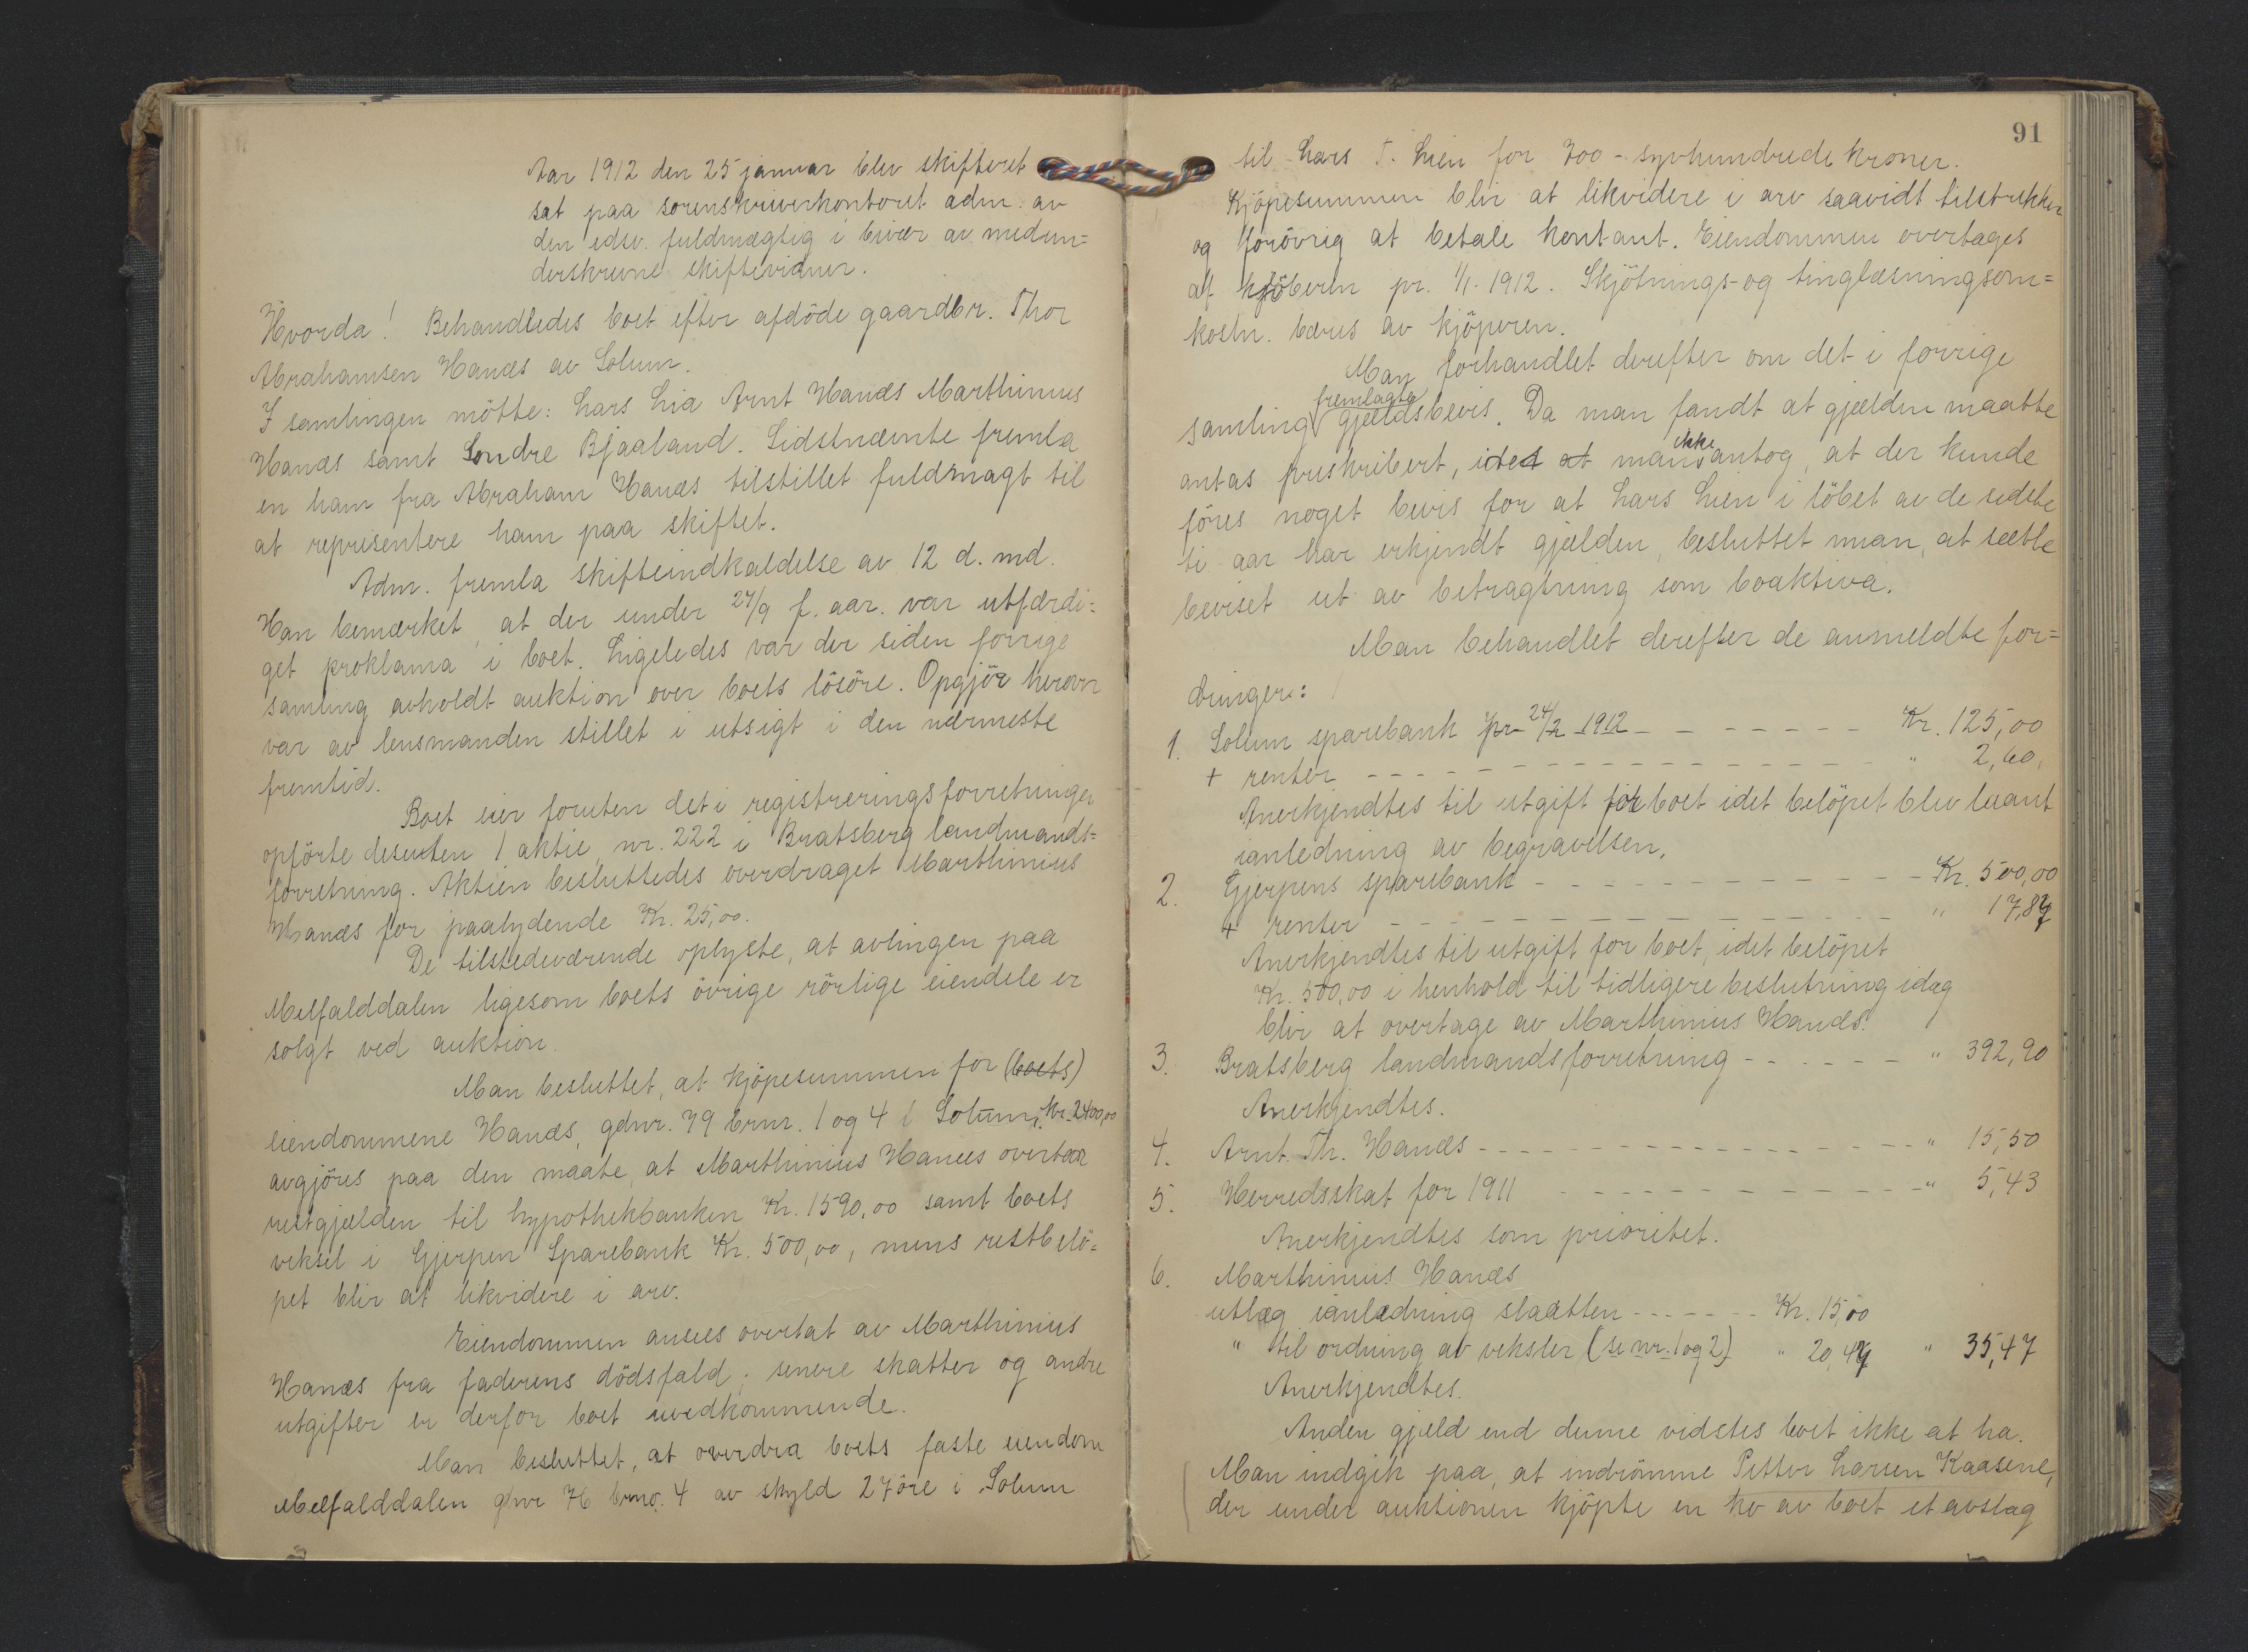 Aar 1912 den 25 januar blev skifteret
sat paa sorenskriverkontoret adm. av
den edsv. fuldmægtig i bivær av medun=
derskrevne skiftevidner.
Hvorda! Behandledes boet efter afdöde gaardbr. Thor
Abrahamsen Hanæs av Solum.
I samlingen mötte: Lars Lia Arnt Hanæs Marthinius
Hanæs samt Sondre Bjaaland. Sidstnævnte fremla
en ham fra Abraham Hanæs tilstillet fuldmagt til
at representere ham paa skiftet.
Adm. fremla skifteindkaldelse av 12 d. md.
Han bemærket, at der under 27/9 f. aar. var utfærdi=
get proklama i boet. Ligeledes var der siden forrige
samling avholdt auktion over boets lösöre. Opgjör herover
var av lensmanden stillet i utsigt i den nærmeste
fremtid.
Boet eier foruten det i registreringsforretningen
opförte desuten 1 aktie, nr. 222 i Bratsberg landmands=
forretning. Aktien besluttedes overdraget Marthinius
Hanæs for paalydende Kr. 25,00.
De tilstedeværende oplyste, at avlingen paa
Melfalddalen ligesom boets övrige rörlige eiendele er
solgt ved auktion.
Man besluttet, at kjöpesummen for (boets)
eiendommene Hanæs, gdnr. 79 brnr. 1 og 4 i Solum, Kr. 2400,00
avgjöres paa den maate, at Marthinius Hanæs overtar
restgjælden til hypothekbanken Kr. 1590,00 samt boets
veksel i Gjerpen Sparebank Kr. 500,00, mens restbelö=
pet blir at likvidere i arv.
Eiendommen ansees overtat av Marthinius
Hanæs fra faderens dödsfald; senere skatter og andre
utgifter er derfor boet uvedkommende.
Man besluttet, at overdra boets faste eiendom
Melfalddalen gnr 76 brno. 4 av skyld 27 öre i Solum
91
til Lars T. Lien for 700 - syvhundrede kroner.
Kjöpesummen blir at likvidere i arv saavidt tilstrækker
og forövrig at betale kontant. Eiendommen overtages
af kjöberen pr. 1/1. 1912. Skjötnings- og tinglæsningsom=
kostn. bæres av kjöperen.
Man forhandlet derefter om det i forrige
samling fremlagte gjældsbevis. Da man fandt at gjælden maatte
antas preskribert, idet at man ikke antog, at der kunde
föres noget bevis for at Lars Lien i löbet av de sidste
ti aar har erkjendt gjælden, besluttet man, at sætte
beviset ut av betragtning som boaktiva.
Man behandlet derefter de anmeldte for=
dringer:
1. Solum sparebank pr 24/2 1912 - - - - - - - Kr. 125,00
+ renter - - - - - - - - - - - - - - " 2,60.
Anerkjendtes til utgift for boet idet belöpet blev laant
ianledning av begravelsen.
2. Gjerpens sparebank - - - - - - - - - - - Kr. 500,00
+ renter - - - - - - - - - - - - - " 17,87
Anerkjendtes til utgift for boet, idet belöpet
Kr. 500,00 i henhold til tidligere beslutning idag
blir at overtage av Marthinius Hanæs.
3. Bratsberg landmandsforretning - - - - - - " 392,90
Anerkjendtes.
4. Arnt Th. Hanæs - - - - - - - - - - - - " 15,50
5. Herredsskat for 1911 - - - - - - - - - - " 5,43
Anerkjendtes som prioritet.
6. Marthinius Hanæs
utlæg ianledning slaatten - - - - - - Kr. 15,00
" til ordning av veksler (se nr. 1 og 2) " 20,47 " 35,47
Anerkjendtes.
Anden gjæld end denne vidstes boet ikke at ha.
Man indgik paa, at indrömme Petter Larsen Kaasene,
der under auktionen kjöpte en ko av boet et avslag